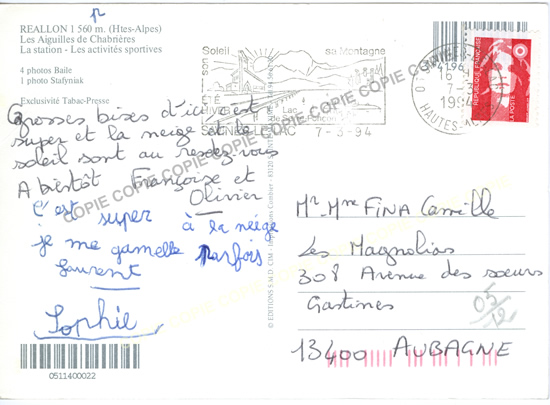 REALLON 1 560 m. (Htes-Alpes)
Les Aiguilles de Chabrières
La station - Les activités sportives
4 photos Baile
1 photo Stafyniak
Exclusivité Tabac-Presse
Grosses bises d'ici c'est
super et la neige et le
soleil sont au rendez-vous
A bientôt Françoise et
Olivier
C'est super à la neige
je me gamelle parfois
Laurent
Sophie
0511400022
© EDITIONS S.A.I.D. CIM
son Soleil
sa Montagne
ÉTÉ
HIVER
Lac
de Serre-Ponçon
SAVINES-LE-LAC 7-3-94
16 H
7-3
1994
HAUTES-ALPES
REPUBLIQUE FRANÇAISE
LA POSTE
Mr. Mme FINA Camille
Les Magnolias
308 Avenue des soeurs
Gastines
05/12
13400 AUBAGNE
COPIE COPIE COPIE COPIE COPIE COPIE COPIE COPIE